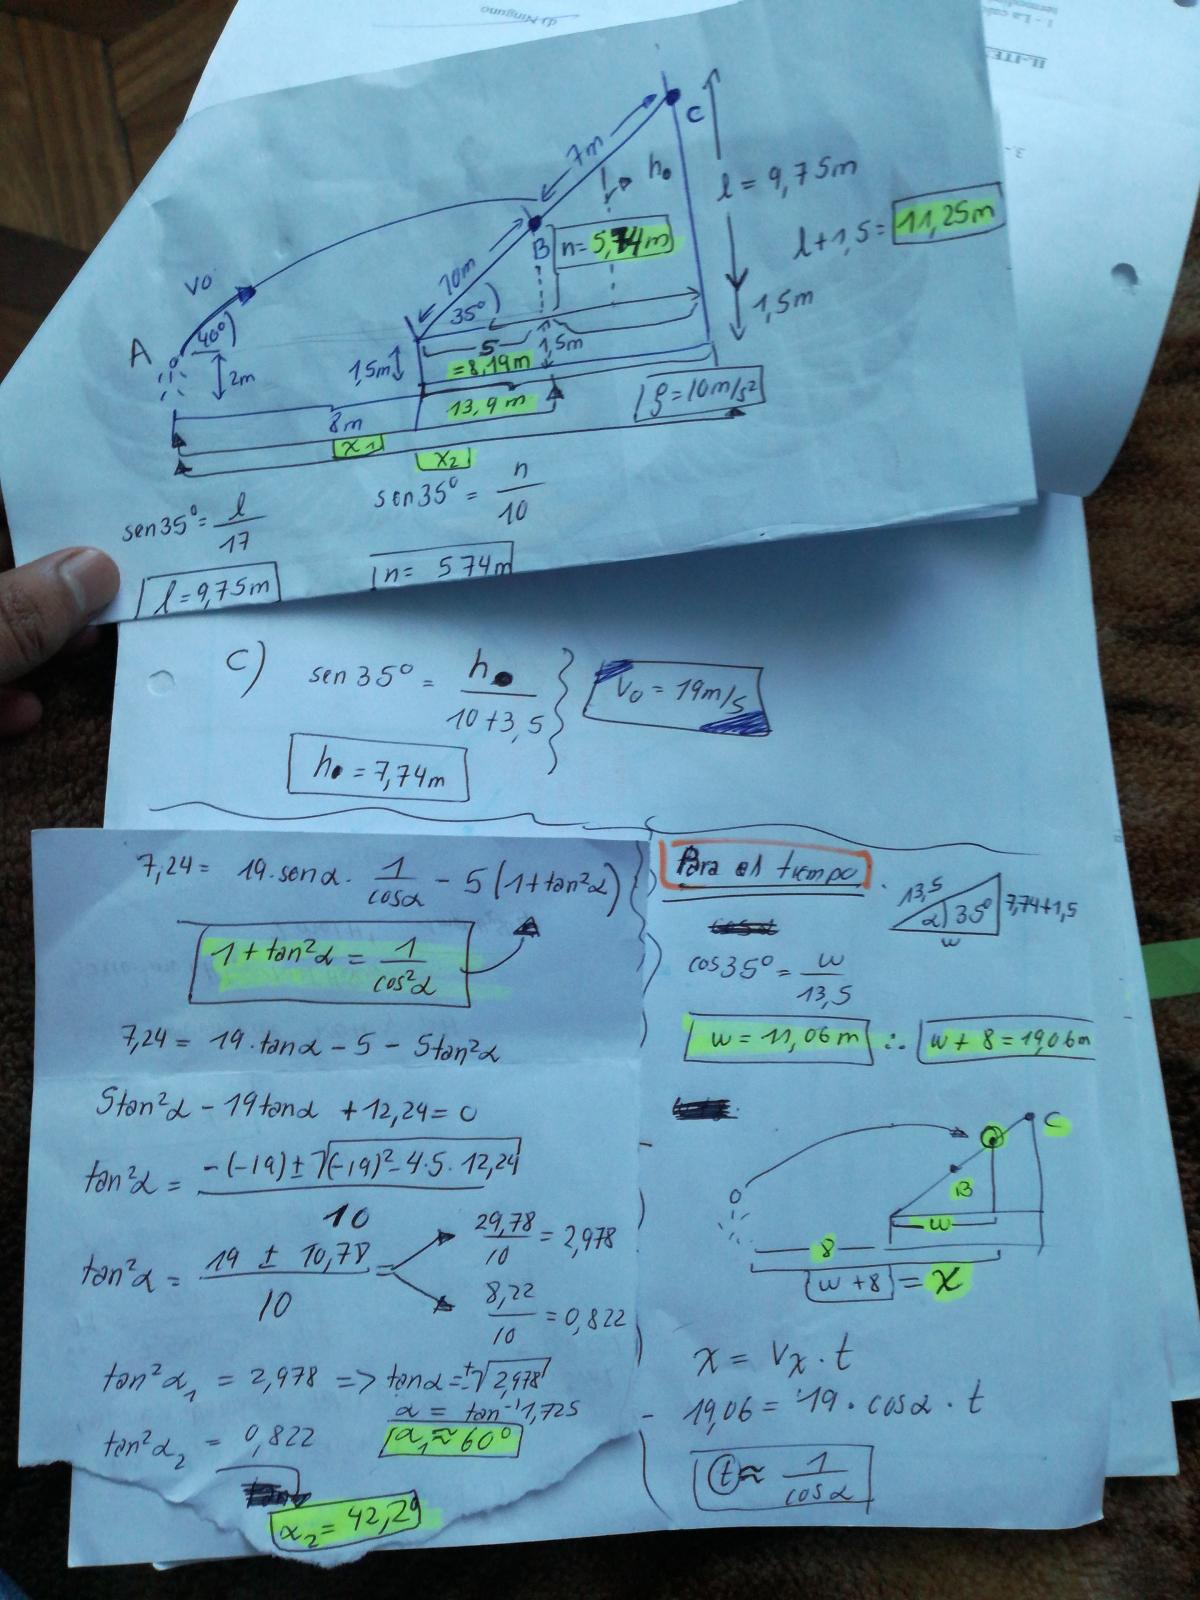 d) Ninguno
1 - La
II.-ITE
3.-
C
7m
h₀
l = 9,75m
l+1,5= 11,25m
B
n= 5,74m
vo
10m
40°
35°
1,5m
A
2m
1,5m
5
=8,19m
1,5m
13,9 m
g=10m/s²
8m
x1
x2
sen35°= l/17
sen35° = n/10
l = 9,75m
n= 574m
C) sen 35° = h/(10+3,5)
V₀ = 19m/s
h = 7,74m
7,24= 19·senα· 1/cosα - 5(1+tan²α)
1 + tan²α = 1/cos²α
7,24= 19·tanα - 5 - 5tan²α
5tan²α - 19tanα + 12,24= 0
tan²α = (-(-19) ± √((-19)² - 4·5·12,24))/10
tan²α = (19 ± 10,78)/10 =
29,78/10 = 2,978
8,22/10 = 0,822
tan²α₁ = 2,978 => tanα=±√2,978
α = tan⁻¹1,725
α₁ ≈ 60°
tan²α₂ = 0,822
α₂ = 42,2°
Para el tiempo
13,5
α
35°
7,74+1,5
w
cos35° = w/13,5
w = 11,06m ∴ w + 8 = 19,06m
C
B
w
8
w +8 = x
x = Vx · t
19,06= 19· cosα · t
t ≈ 1/cosα